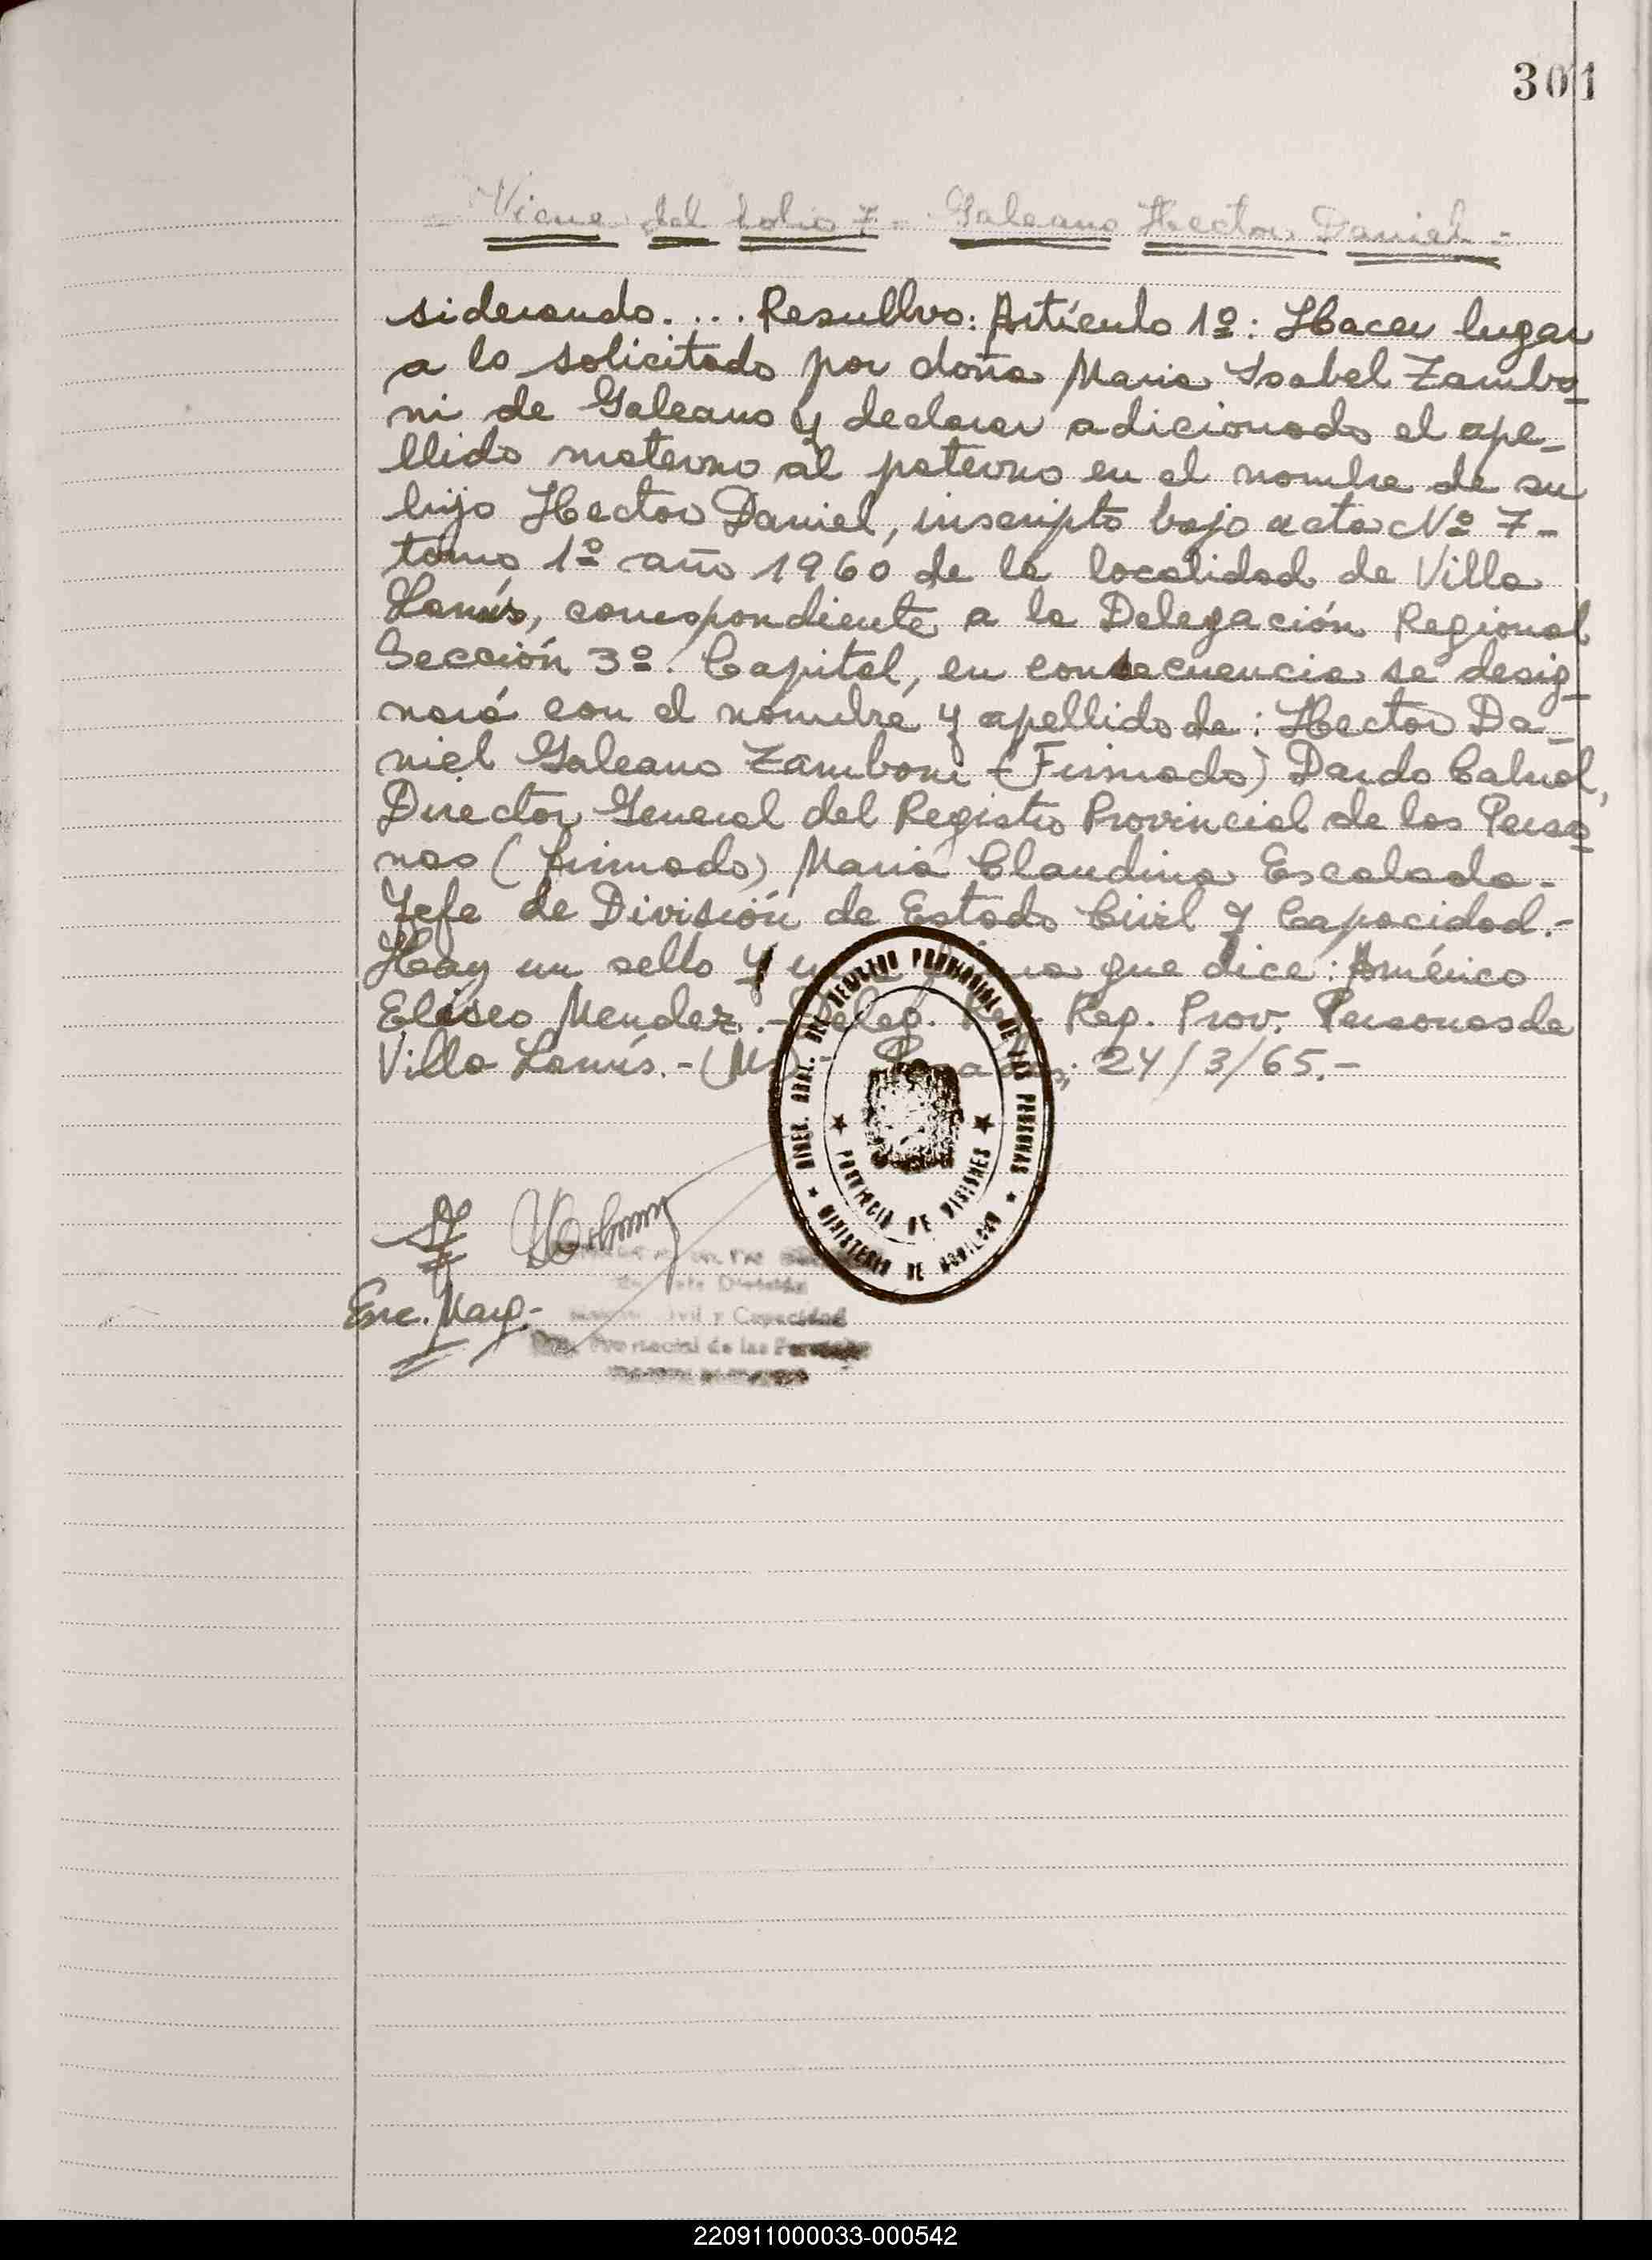 301
- Viene del folio 7 - Galeano Hector Daniel -
siderando. ... Resuelvo: Artículo 1º: Hacer lugar
a lo solicitado por doña Maria Isabel Zambo-
ni de Galeano y declarar adicionado el ape-
llido materno al paterno en el nombre de su
hijo Hector Daniel, inscripto bajo acta Nº 7-
tomo 1º año 1960 de la localidad de Villa
Lanús, correspondiente a la Delegación Regional
Sección 3º. Capital, en consecuencia se desig-
nará con el nombre y apellido de: Hector Da-
niel Galeano Zamboni - (Firmado) Dardo
Director General del Registro Provincial de las Perso-
nas (firmado) Maria Claudina Escalada -
Jefe de División de Estado Civil y Capacidad.-
Hay un sello y una firma que dice: Américo
Eliseo Mendez. - Deleg. Reg. Rep. Prov. Personas de
Villa Lanús. - 24/3/65.-
DIREC. GRAL. DEL REGISTRO PROVINCIAL DE LAS PERSONAS
PROVINCIA DE MISIONES
MINISTERIO DE
Enc. Marg.-
División
Civil y Capacidad
Provincial de las Personas
220911000033-000542